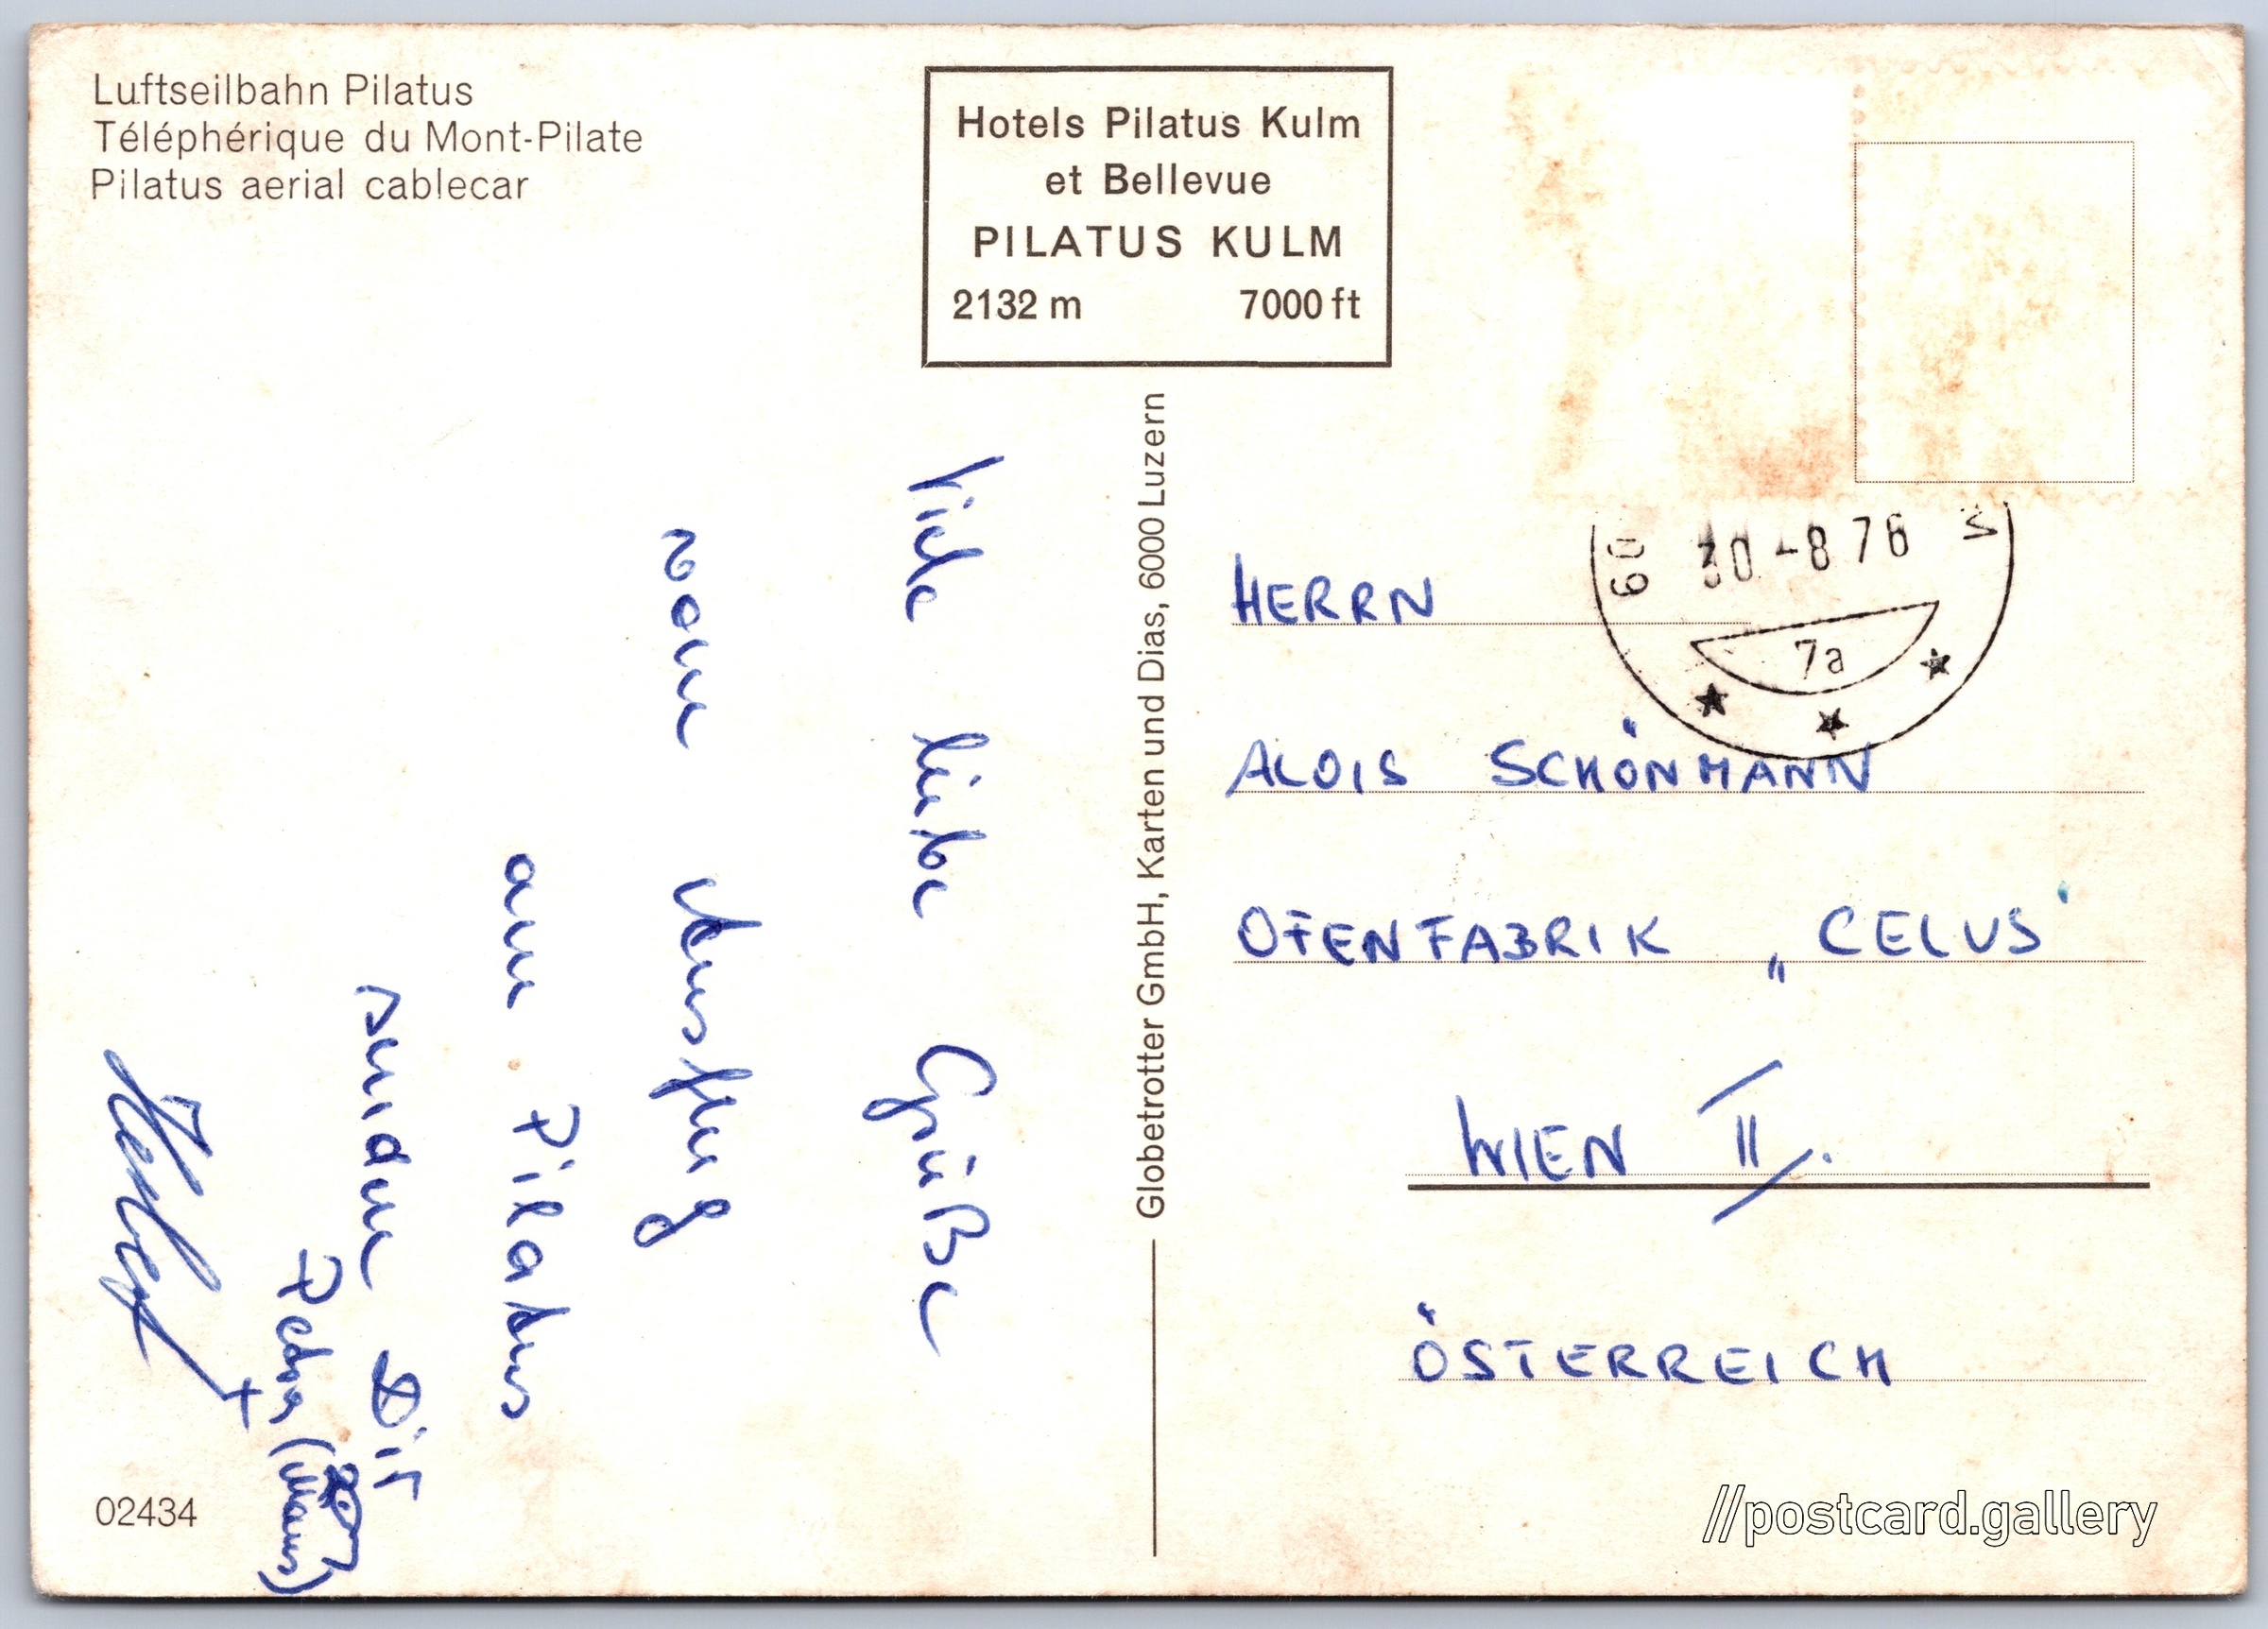 Luftseilbahn Pilatus
Téléphérique du Mont-Pilate
Pilatus aerial cablecar
Hotels Pilatus Kulm
et Bellevue
PILATUS KULM
2132 m 7000 ft
Viele liebe Grüße
vom Ausflug
am Pilatus
senden Dir
Peter (Maus)
Herbert
Globetrotter GmbH, Karten und Dias, 6000 Luzern
60
30-876
7a
HERRN
ALOIS SCHÖNMANN
OFENFABRIK „CELUS"
WIEN II.
ÖSTERREICH
02434
//postcard.gallery